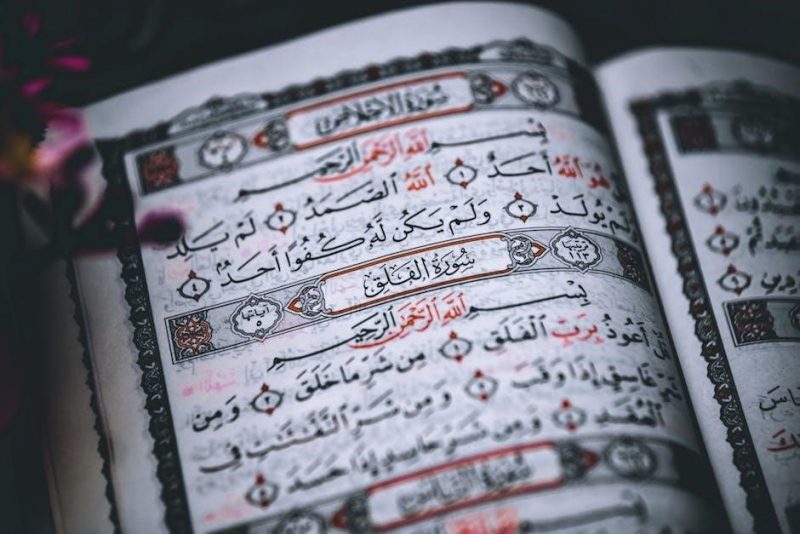 سُورَةُ الإِخْلَاصِ
بِسْمِ ٱللَّهِ ٱلرَّحْمَٰنِ ٱلرَّحِيمِ
هُوَ ٱللَّهُ أَحَدٌ ١ ٱللَّهُ ٱلصَّمَدُ ٢ لَمْ يَلِدْ
يُولَدْ ٣ وَلَمْ يَكُن لَّهُ كُفُوًا أَحَدٌ ٤
رتبتها ١١٣ سُورَةُ الفَلَقِ آياتها ٥
بِسْمِ ٱللَّهِ ٱلرَّحْمَٰنِ ٱلرَّحِيمِ
أَعُوذُ بِرَبِّ ٱلْفَلَقِ ١ مِن شَرِّ مَا خَلَقَ ٢ وَمِن
غَاسِقٍ إِذَا وَقَبَ ٣ وَمِن شَرِّ ٱلنَّفَّٰثَٰتِ فِى
ٱلْعُقَدِ ٤ وَمِن شَرِّ حَاسِدٍ إِذَا حَسَدَ ٥
سُورَةُ النَّاسِ